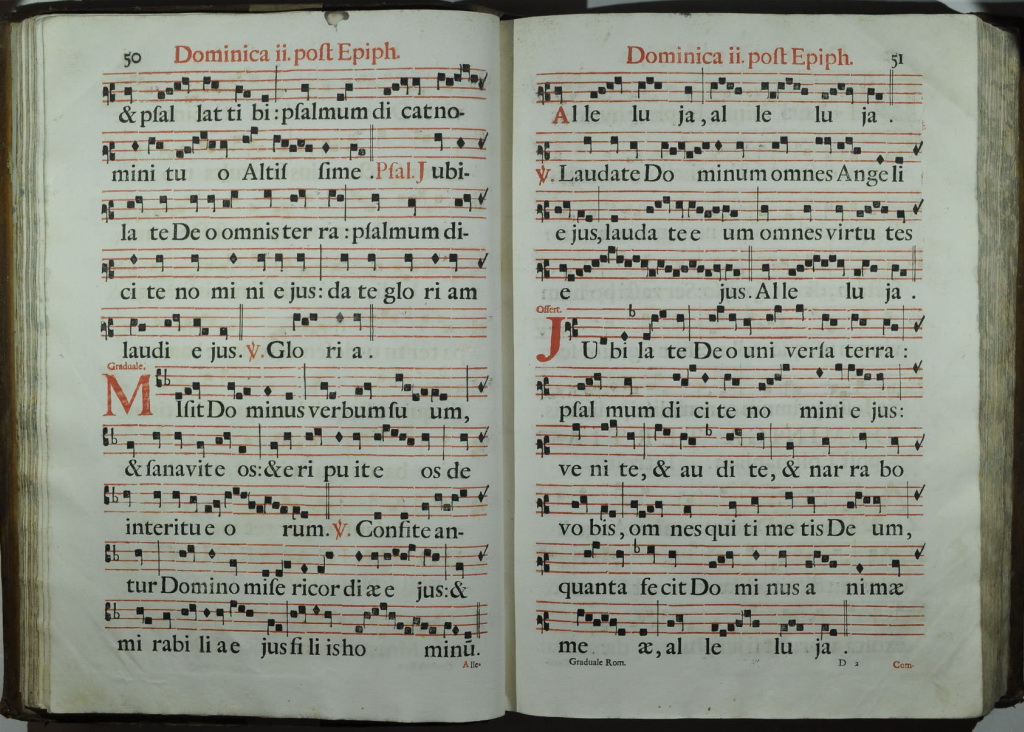 50 Dominica ii. poſt Epiph.
& pſal lat ti bi : pſalmum di cat no-
mini tu o Altiſ ſime . Pſal. J ubi-
la te De o omnis ter ra : pſalmum di-
ci te no mi ni e jus : da te glo ri am
laudi e jus. ℣. Glo ri a .
Graduale.
M Iſit Do minus verbum ſu um,
& ſanavit e os : & e ri pu it e os de
interitu e o rum. ℣. Confite an-
tur Domino miſe ricor di æ e jus : &
mi rabi li a e jus fi li is ho minū.
Alle-
Dominica ii. poſt Epiph. 51
Al le lu ja , al le lu ja .
℣. Laudate Do minum omnes Ange li
e jus, lauda te e um omnes virtu tes
e jus. Al le lu ja .
Offert.
J U bi la te De o uni verſa terra :
pſal mum di ci te no mini e jus :
ve ni te, & au di te, & nar ra bo
vo bis, om nes qui ti me tis De um,
quanta fe cit Do mi nus a ni mæ
me æ, al le lu ja .
Graduale Rom. D 2 Com-